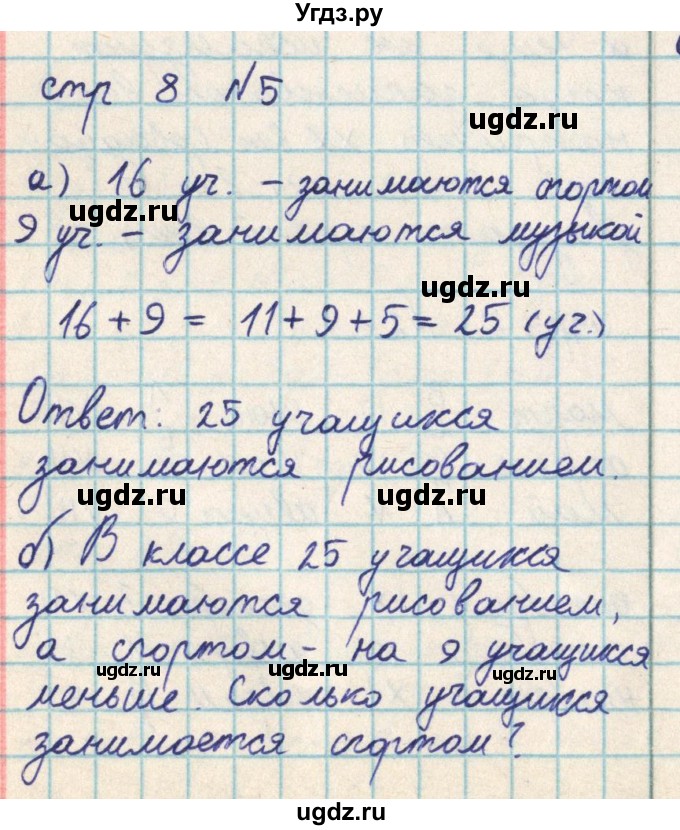 Угдз.ру
стр 8 №5
ugdz.ru
а) 16 уч. – занимаются спортом
ugdz.ru
9 уч. – занимаются музыкой
ugdz.ru
16 + 9 = 11 + 9 + 5 = 25 (уч.)
Ответ: 25 учащихся
занимаются рисованием.
ugdz.ru ugdz.ru
б) В классе 25 учащихся
занимаются рисованием,
а спортом – на 9 учащихся
ugdz.ru ugdz.ru
меньше. Сколько учащихся
занимается спортом?
ugdz.ru